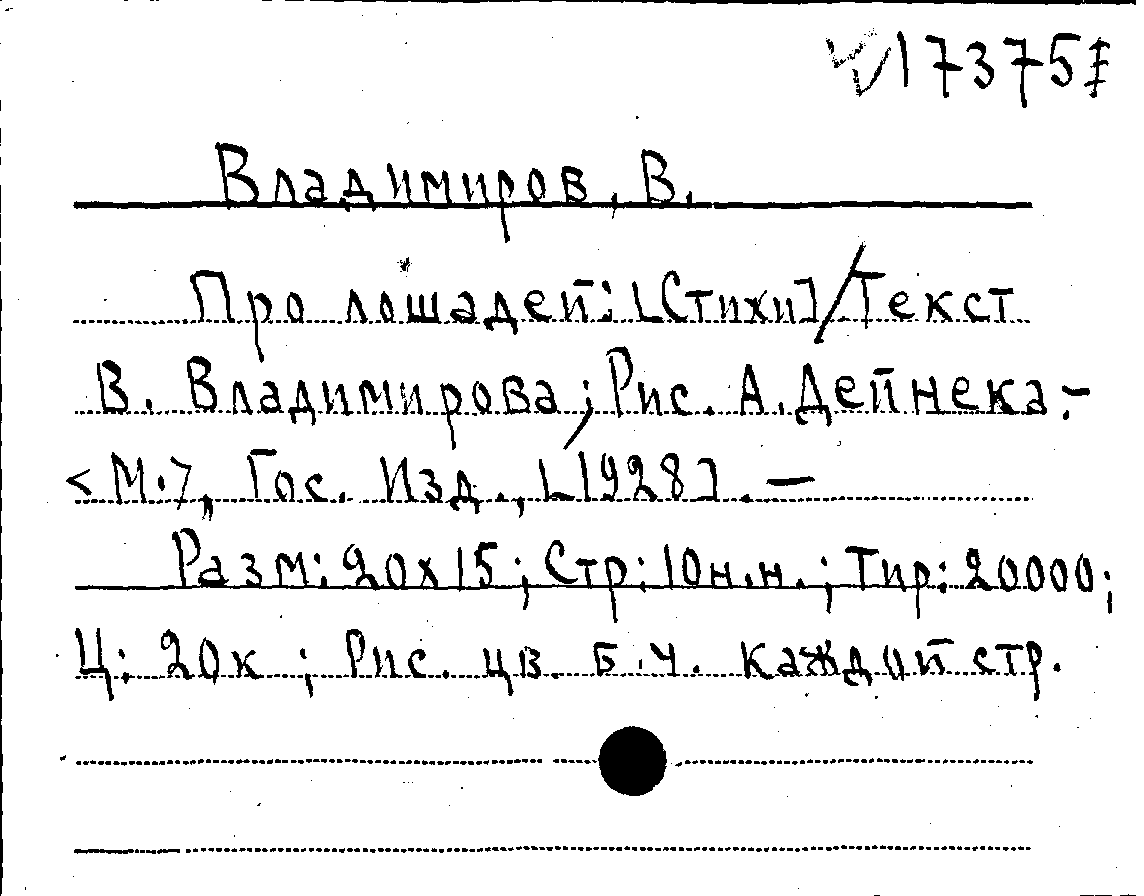 17375
Владимиров, В.
Про лошадей: [Стихи] / Текст
В. Владимирова; Рис. А. Дейнека.-
<М.>, Гос. Изд., [1928]. —
Разм: 20х15; Стр: 10 н.н.; Тир: 20000;
Ц: 20 к; Рис. цв. б.ч. каждой стр.